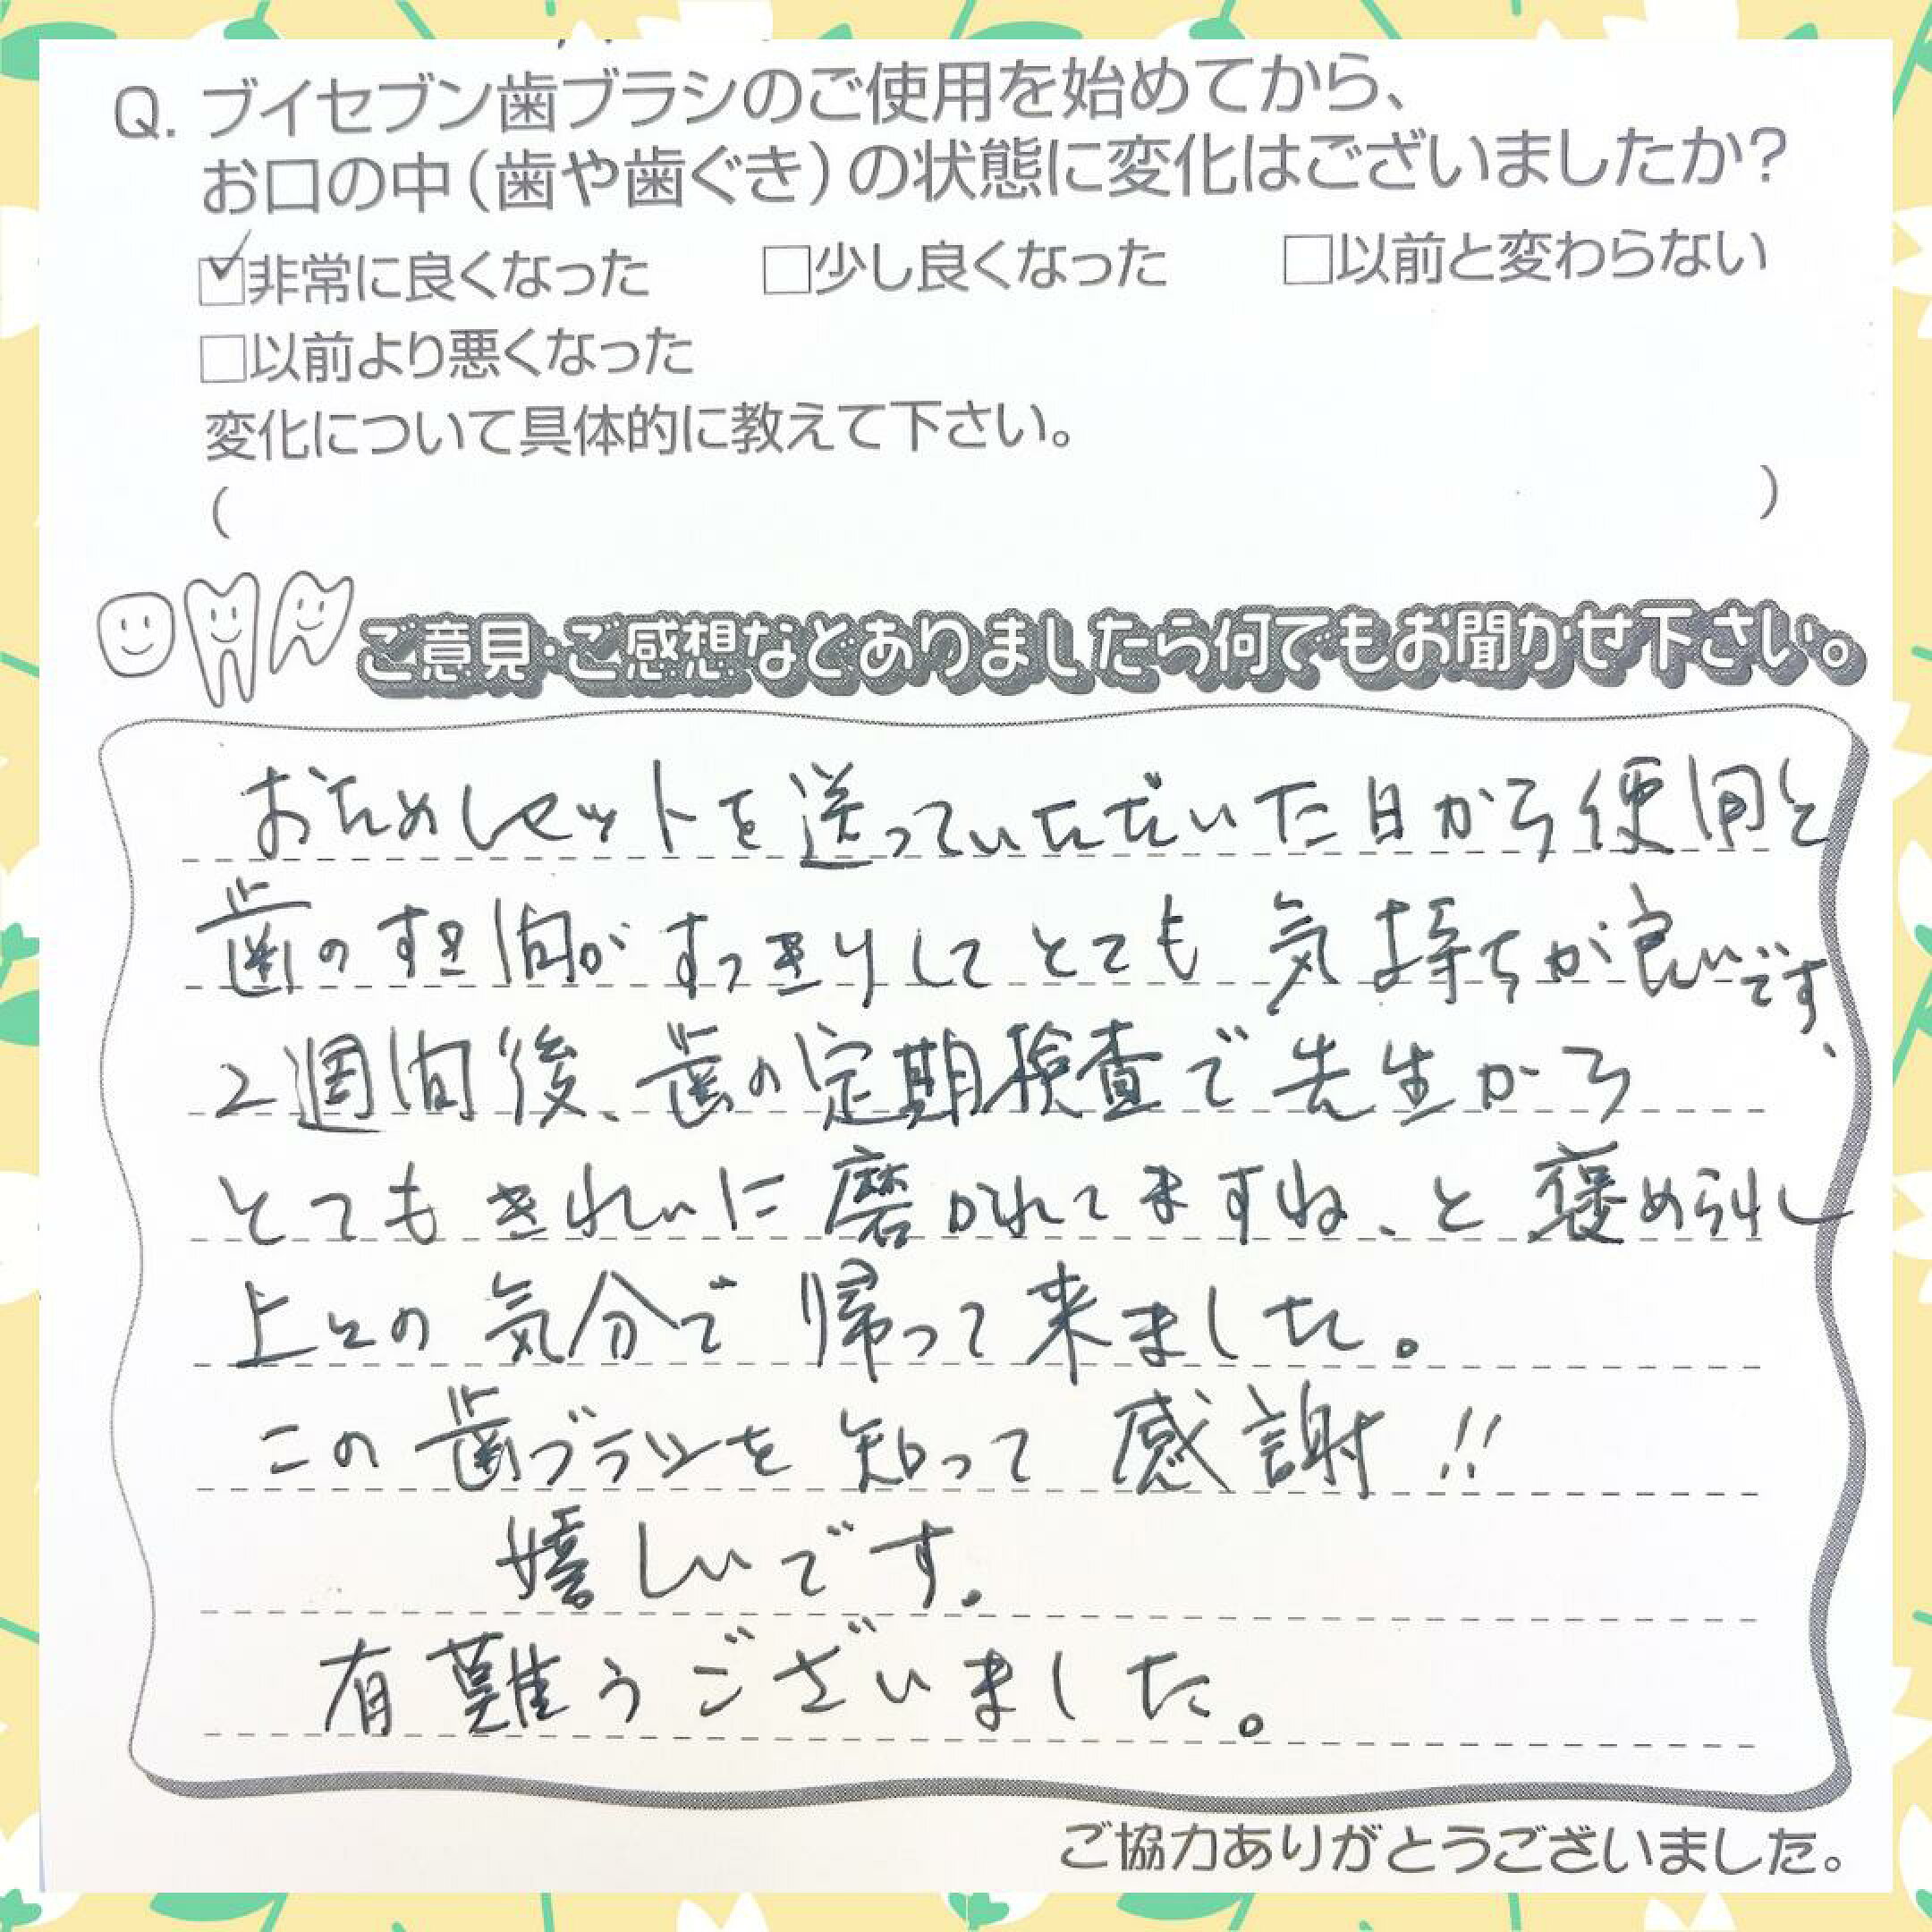 Q. ブイセブン歯ブラシのご使用を始めてから、
お口の中（歯や歯ぐき）の状態に変化はございましたか？
☑非常に良くなった　□少し良くなった　□以前と変わらない
□以前より悪くなった
変化について具体的に教えて下さい。
（　　　）
ご意見・ご感想などありましたら何でもお聞かせ下さい。
おためしセットを送っていただいた日から使用と
歯のすき間がすっきりしてとても気持ちが良いです、
2週間後、歯の定期検査で先生から
とてもきれいに磨かれてますね、と褒められし
上々の気分で帰って来ました。
この歯ブラシを知って感謝!!
嬉しいです。
有難うございました。
ご協力ありがとうございました。